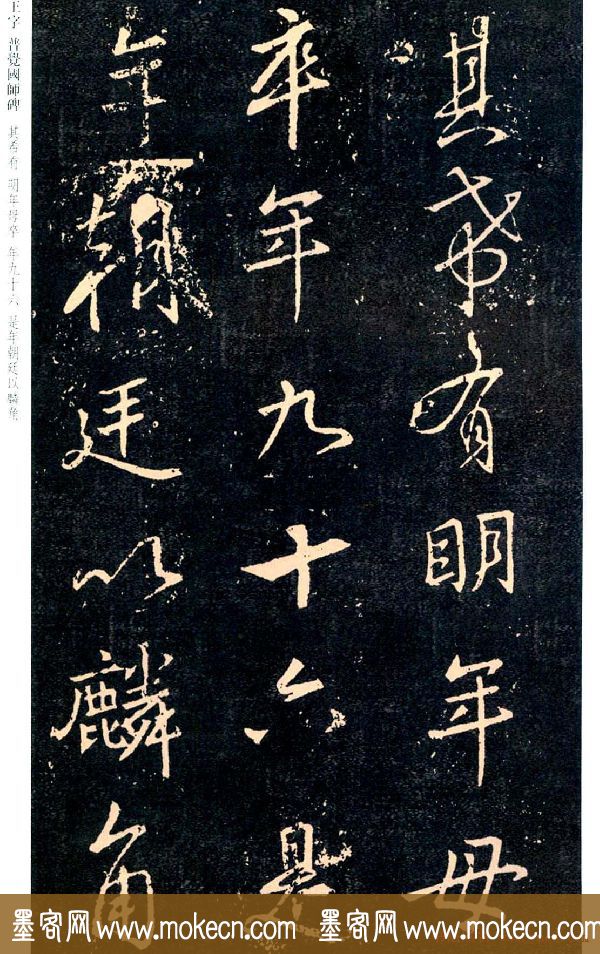 其希有明年母
卒年九十六是
年朝廷以麟角
王字 普覺國師碑 其希有 明年母卒 年九十六 是年朝廷以麟角
墨客网 www.mokecn.com 墨客网 www.mokecn.com